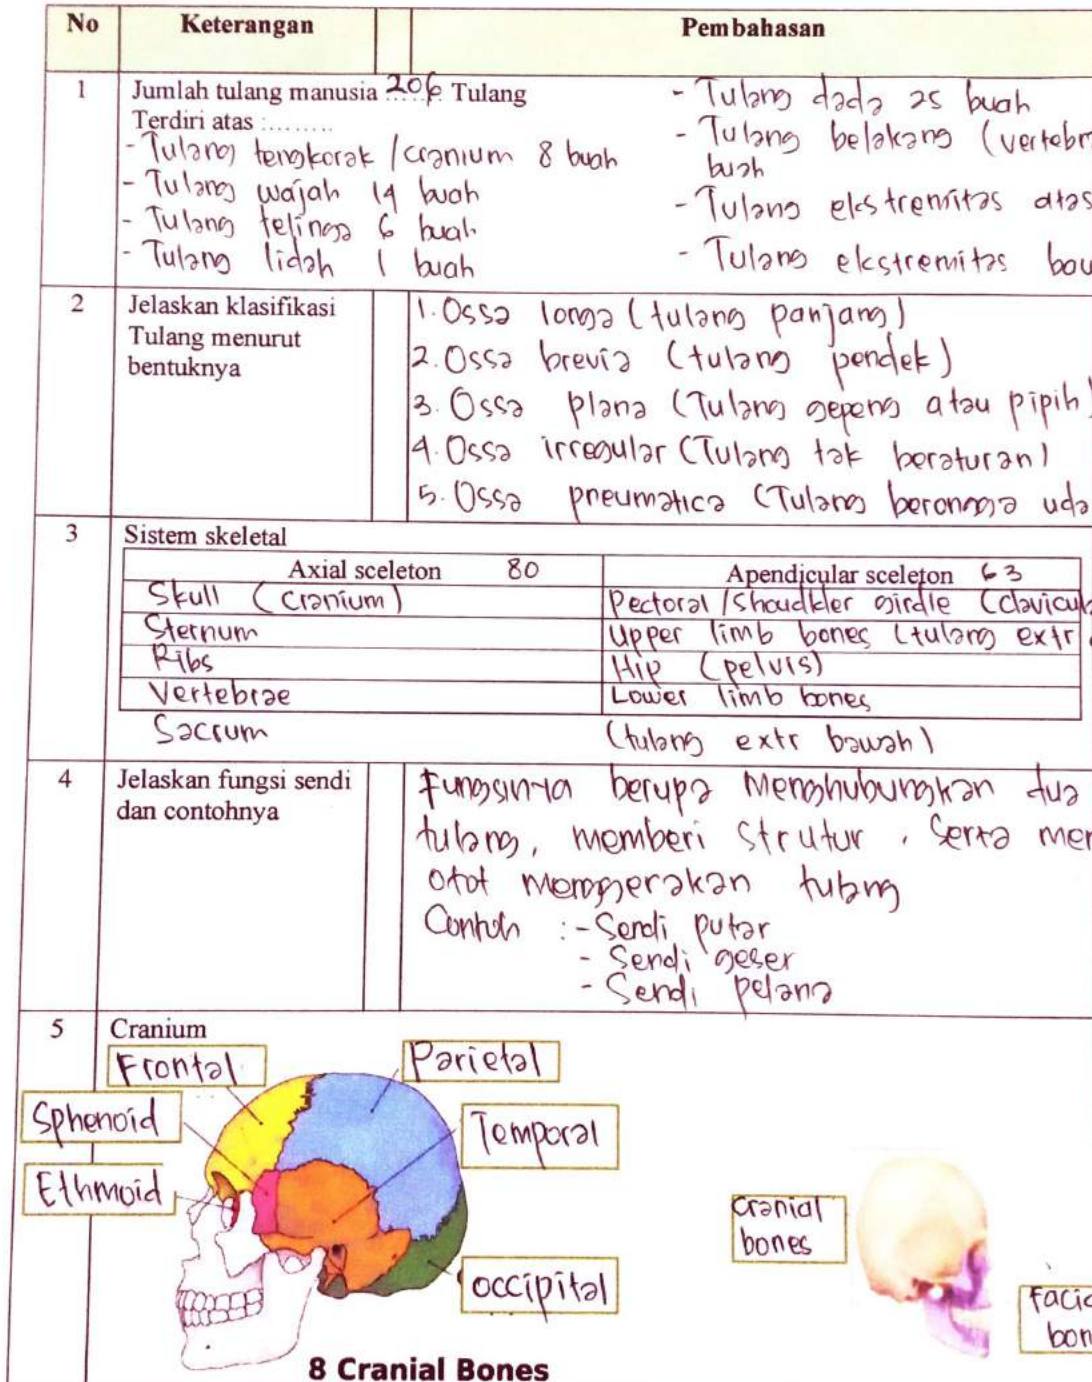 No Keterangan Pembahasan
1 Jumlah tulang manusia 206 Tulang
Terdiri atas :.........
- Tulang tengkorak / cranium 8 buah
- Tulang wajah 14 buah
- Tulang telinga 6 buah
- Tulang lidah 1 buah
- Tulang dada 25 buah
- Tulang belakang (vertebr
buah
- Tulang ekstremitas atas
- Tulang ekstremitas baw
2 Jelaskan klasifikasi
Tulang menurut
bentuknya
1. Ossa longa (tulang panjang)
2. Ossa brevia (tulang pendek)
3. Ossa plana (Tulang gepeng atau pipih)
4. Ossa irregular (Tulang tak beraturan)
5. Ossa pneumatica (Tulang berongga uda
3 Sistem skeletal
Axial sceleton 80
Apendicular sceleton 63
Skull (cranium)
Pectoral / Shoudkler girdle (clavicula
Sternum
Upper limb bones (tulang extr
Ribs
Hip (pelvis)
Vertebrae
Lower limb bones
Sacrum
(tulang extr bawah)
4 Jelaskan fungsi sendi
dan contohnya
Fungsinya berupa menghubungkan dua
tulang, memberi strutur, serta mem
otot menggerakan tulang
Contoh : - Sendi putar
- Sendi geser
- Sendi pelana
5 Cranium
Frontal
Parietal
Sphenoid
Temporal
Ethmoid
occipital
cranial
bones
facia
bon
8 Cranial Bones